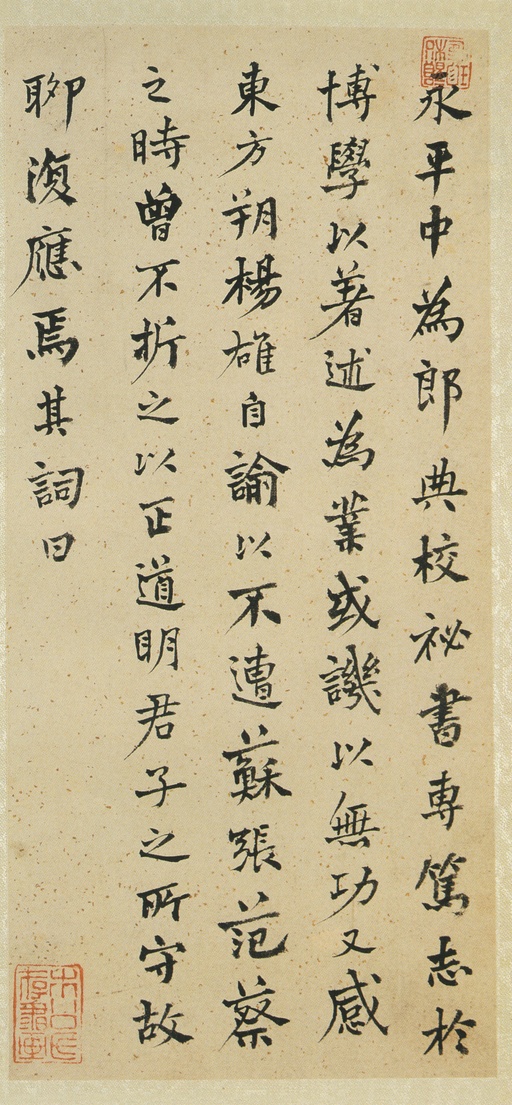 永平中為郎典校祕書專篤志於
博學以著述為業或譏以無功又感
東方朔楊雄自諭以不遭蘇張范蔡
之時曾不折之以正道明君子之所守故
聊復應焉其詞曰